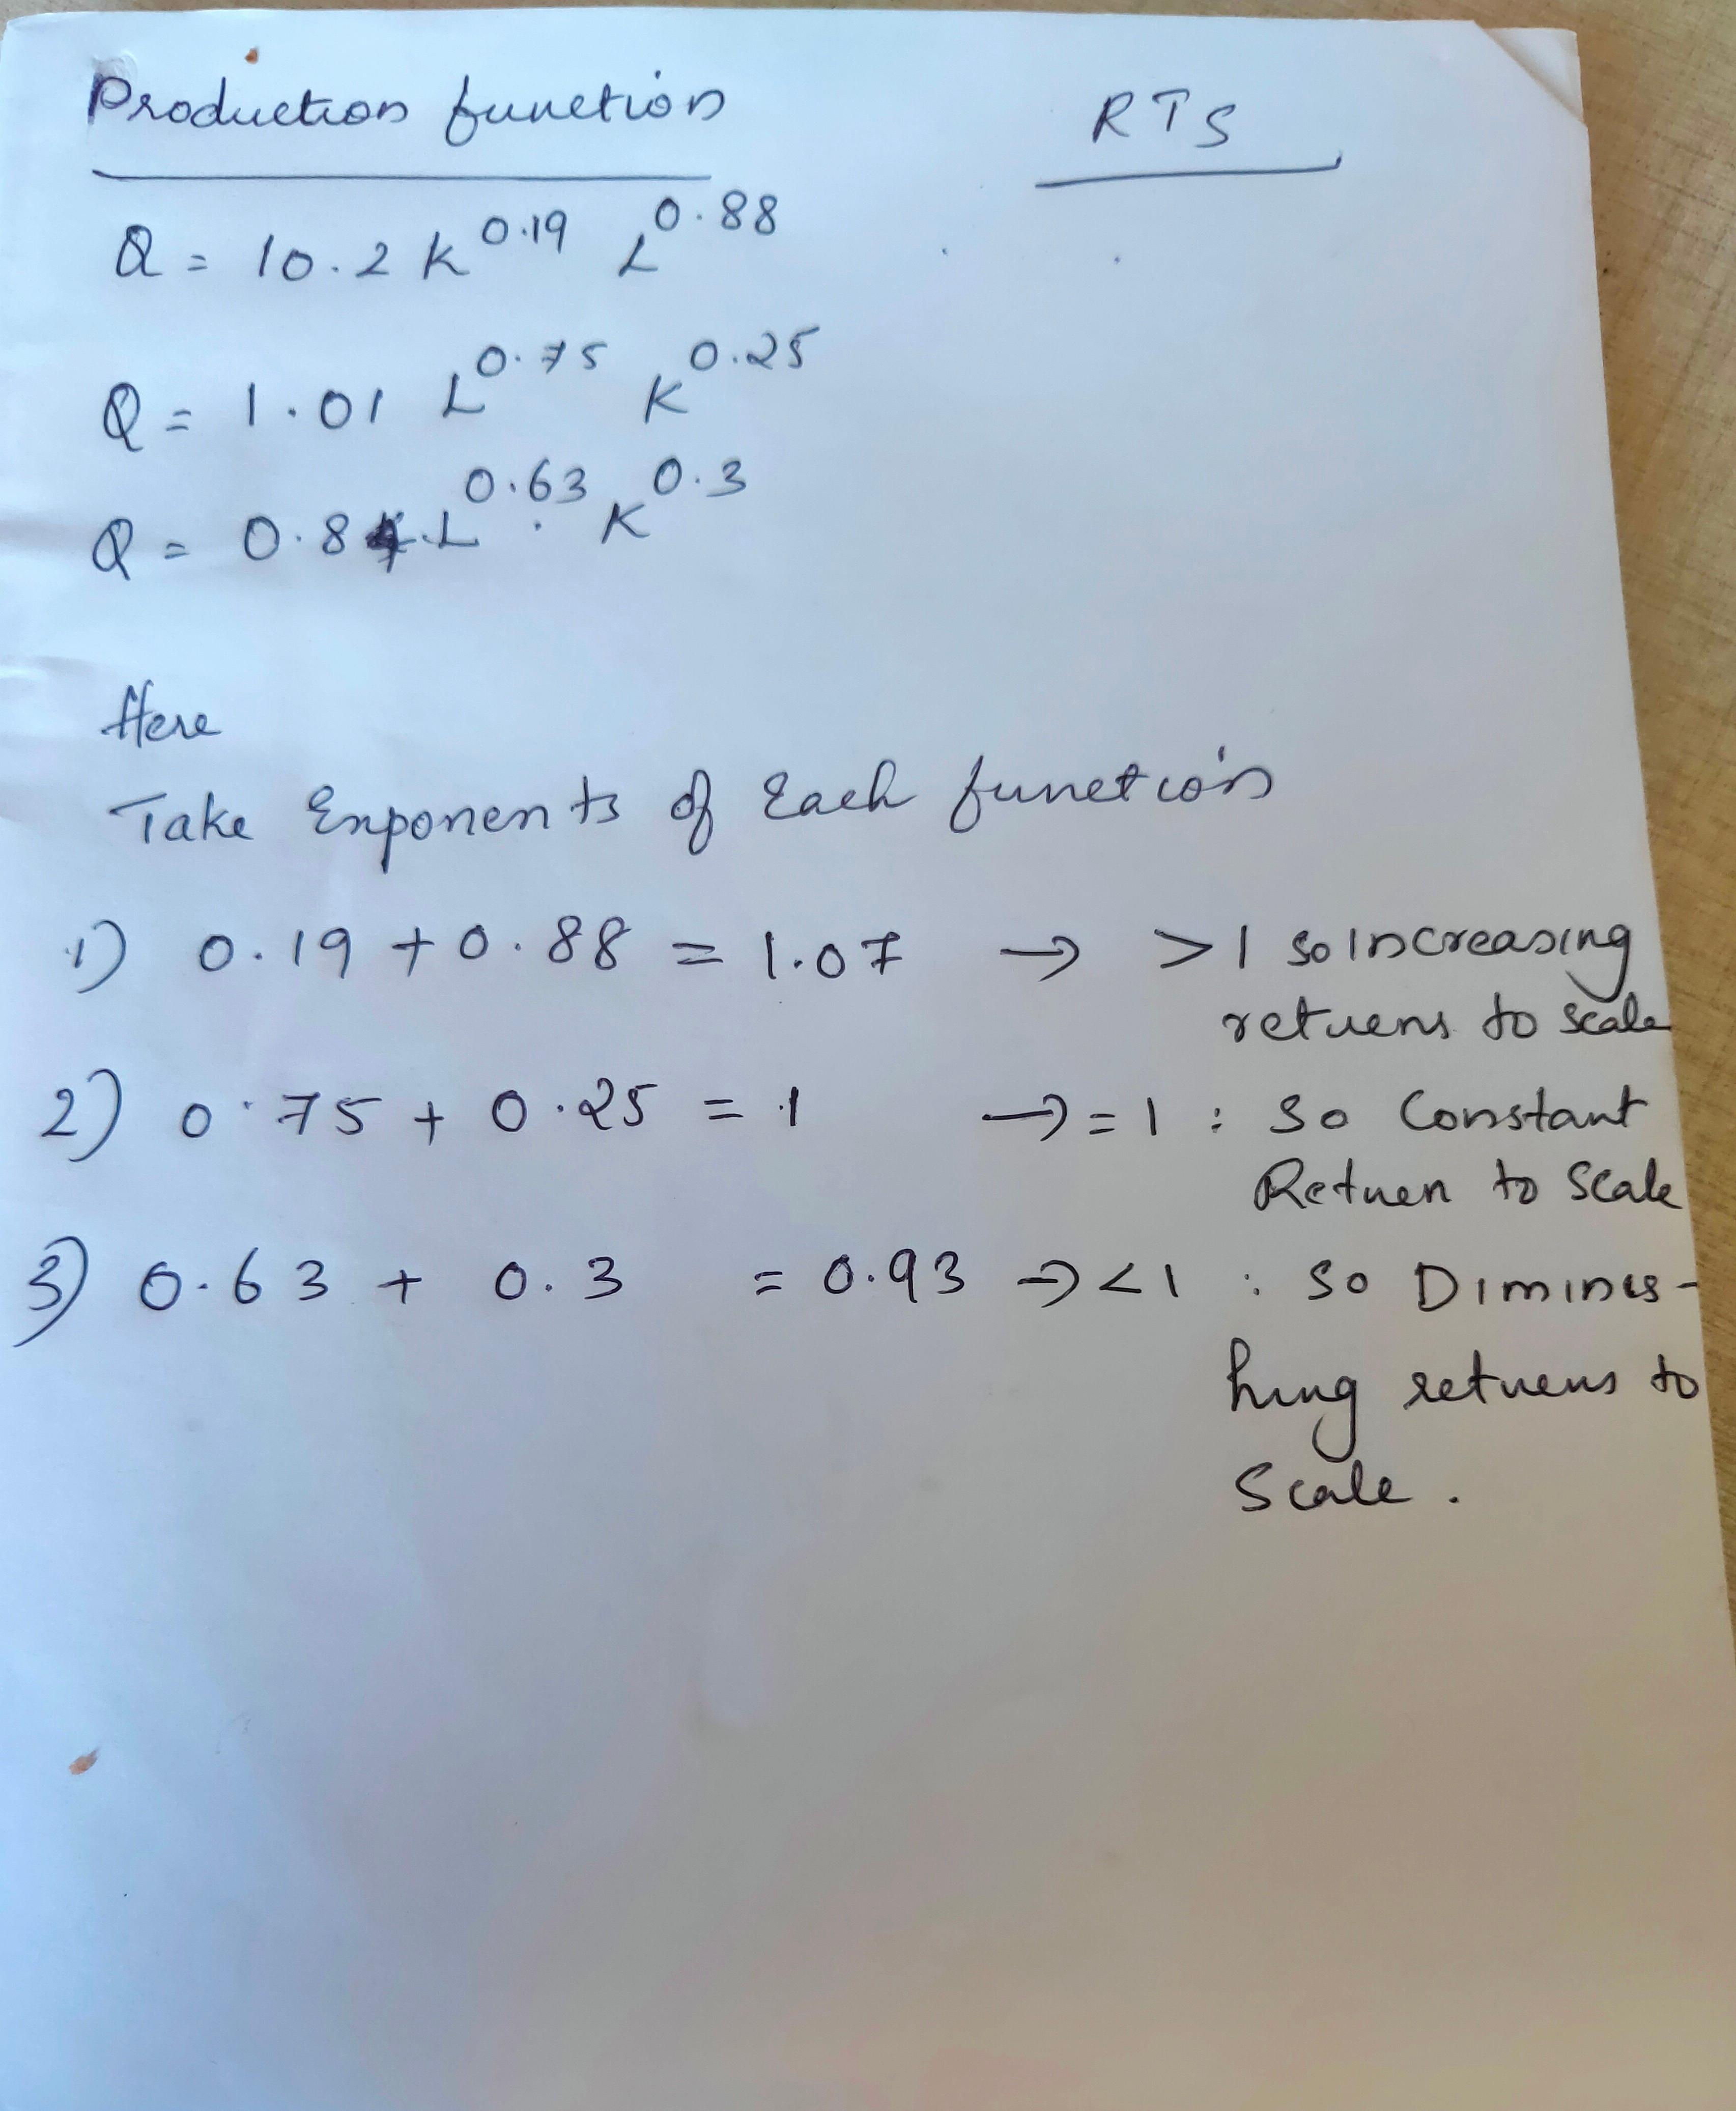 Production function RTS
Q = 10.2 K^0.19 L^0.88
Q = 1.01 L^0.75 K^0.25
Q = 0.84 L^0.63 K^0.3
Here
Take Exponents of Each function
1) 0.19 + 0.88 = 1.07 → > 1 so Increasing
returns to scale
2) 0.75 + 0.25 = 1 → = 1 : So Constant
Return to Scale
3) 0.63 + 0.3 = 0.93 → < 1 : So Diminis-
hing returns to
Scale.